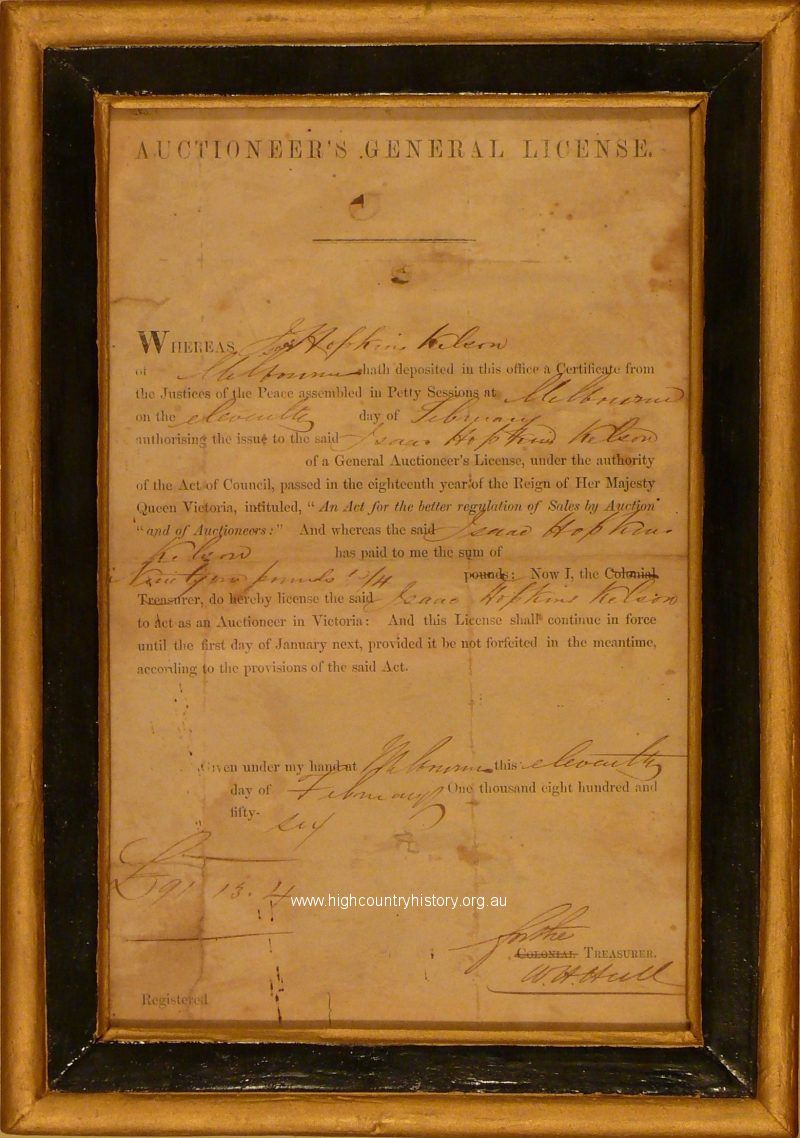 AUCTIONEER'S GENERAL LICENSE.
WHEREAS Hopkins Kelson
of Melbourne hath deposited in this office a Certificate from
the Justices of the Peace assembled in Petty Sessions at Melbourne
on the eleventh day of February
authorising the issue to the said Isaac Hopkins Kelson
of a General Auctioneer's License, under the authority
of the Act of Council, passed in the eighteenth year of the Reign of Her Majesty
Queen Victoria, intituled, "An Act for the better regulation of Sales by Auction
"and of Auctioneers:" And whereas the said Isaac Hopkins
Kelson has paid to me the sum of
pounds 13/4 pounds: Now I, the Colonial
Treasurer, do hereby license the said Isaac Hopkins Kelson
to Act as an Auctioneer in Victoria: And this License shall continue in force
until the first day of January next, provided it be not forfeited in the meantime,
according to the provisions of the said Act.
Given under my hand at Melbourne this eleventh
day of February One thousand eight hundred and
fifty-six
£91 13. 4
www.highcountryhistory.org.au
for the
COLONIAL TREASURER.
W.H. Hull
Registered